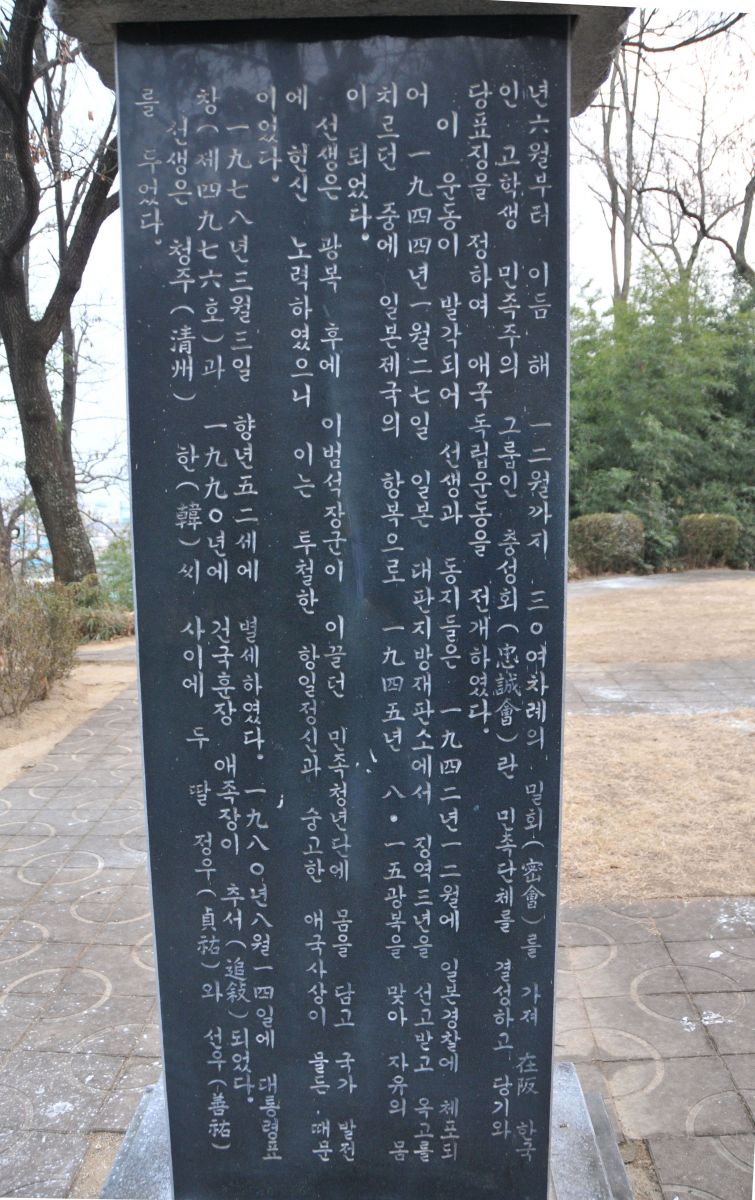 년六월부터 이듬해 一二월까지 三○여차례의 밀회(密會)를 가져 在阪 한국
인 고학생 민족주의 그룹인 충성회(忠誠會)란 민족단체를 결성하고 당기와
당표징을 정하여 애국독립운동을 전개하였다.
이 운동이 발각되어 선생과 동지들은 一九四二년一二월에 일본경찰에 체포되
어 一九四四년一월二七일 일본 대판지방재판소에서 징역三년을 선고받고 옥고를
치르던 중에 일본제국의 항복으로 一九四五년 八·一五광복을 맞아 자유의 몸
이 되었다.
선생은 광복 후에 이범석장군이 이끌던 민족청년단에 몸을 담고 국가 발전
에 헌신 노력하였으니 이는 투철한 항일정신과 숭고한 애국사상이 물든 때문
이었다.
一九七八년三월三일 향년五二세에 별세하였다. 一九八○년八월一四일에 대통령표
창(제四九七六호)과 一九九○년에 건국훈장 애족장이 추서(追敍)되었다.
선생은 청주(清州) 한(韓)씨 사이에 두 딸 정우(貞祐)와 선우(善祐)
를 두었다.